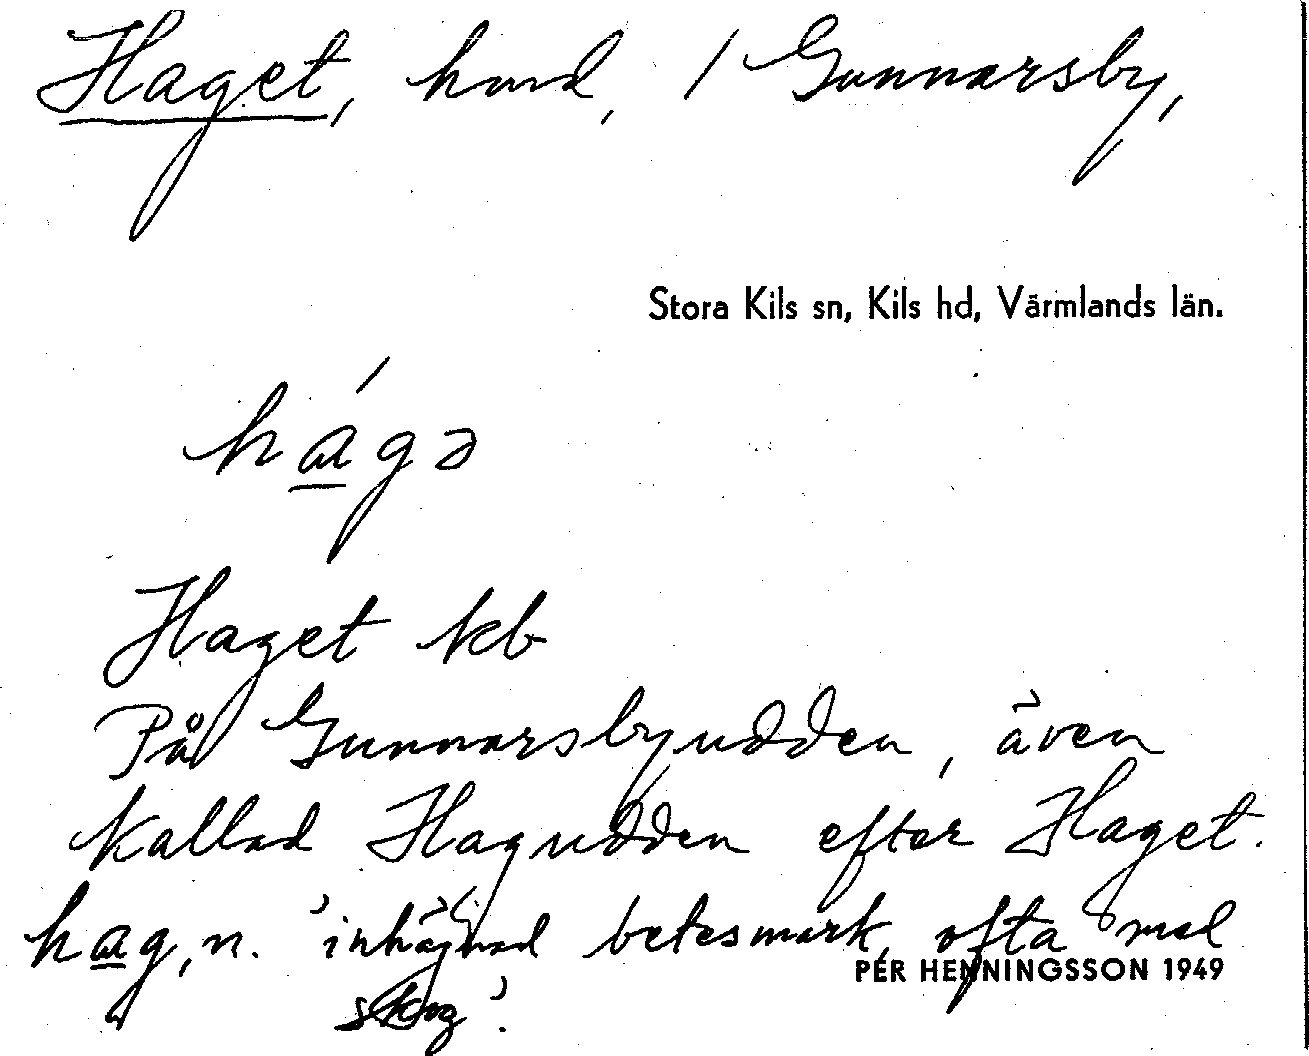 Haget, hmd, / Gunnarsby,
Stora Kils sn, Kils hd, Värmlands län.
há̱gə
Haget kb
På Gunnarsbyudden, även
kallad Hagudden efter Haget.
ha̱g, n. 'inhägnad betesmark, ofta med
PER HENNINGSSON 1949
skog'.